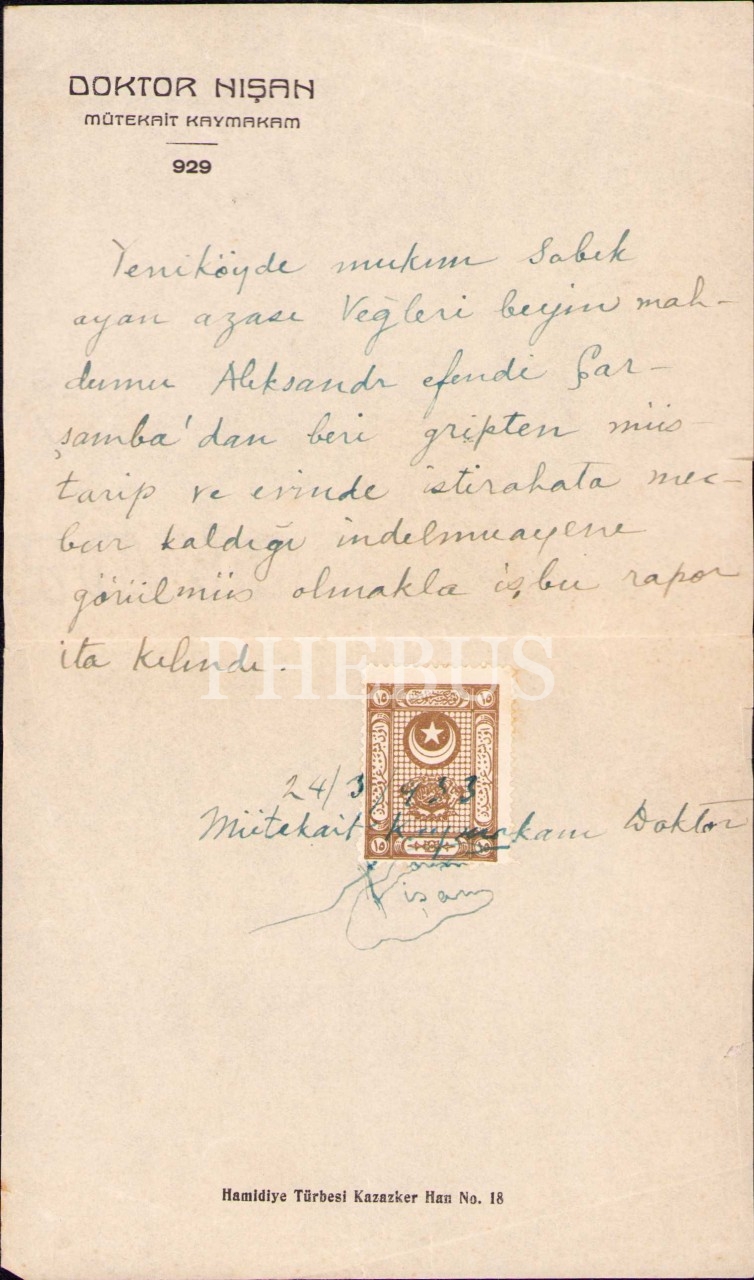 DOKTOR NIŞAN
MÜTEKAİT KAYMAKAM
929
Yeniköyde mukım Sabık
ayan azası Veğleri beyin mah-
dumu Aleksandr efendi Çar-
şamba'dan beri gripten müs-
tarip ve evinde istirahata mec-
bur kaldığı indelmuayene
görülmüs olmakla işbu rapor
ita kılındı.
PHEBUS
١٥ ١٥
24/3 933
Mütekait Kaymakam Doktor
Nişan
١٥ ١٥
Hamidiye Türbesi Kazazker Han No. 18